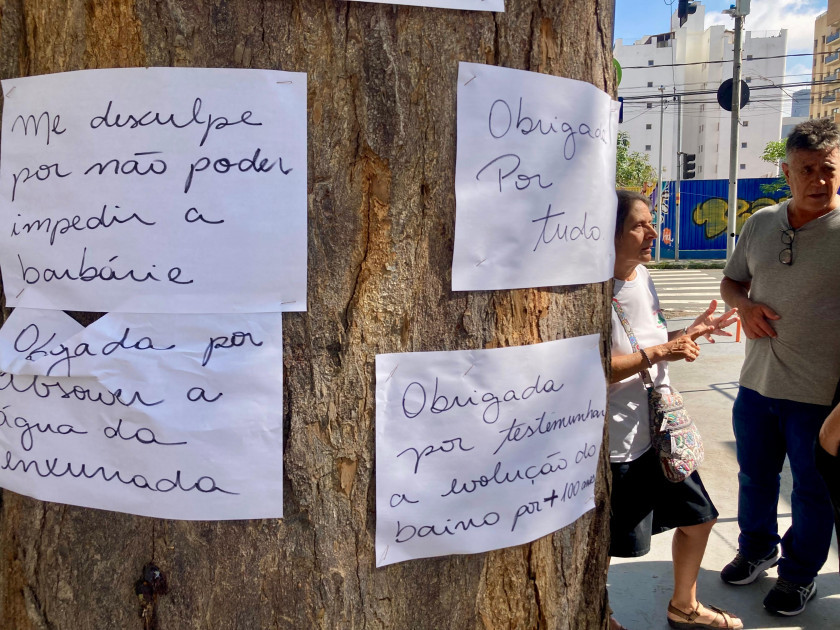 Me desculpe
por não poder
impedir a
barbárie
Obrigada
Por
tudo
por
absorver a
água da
enxurrada
Obrigada
por testemunhar
a evolução do
bairro por + 100